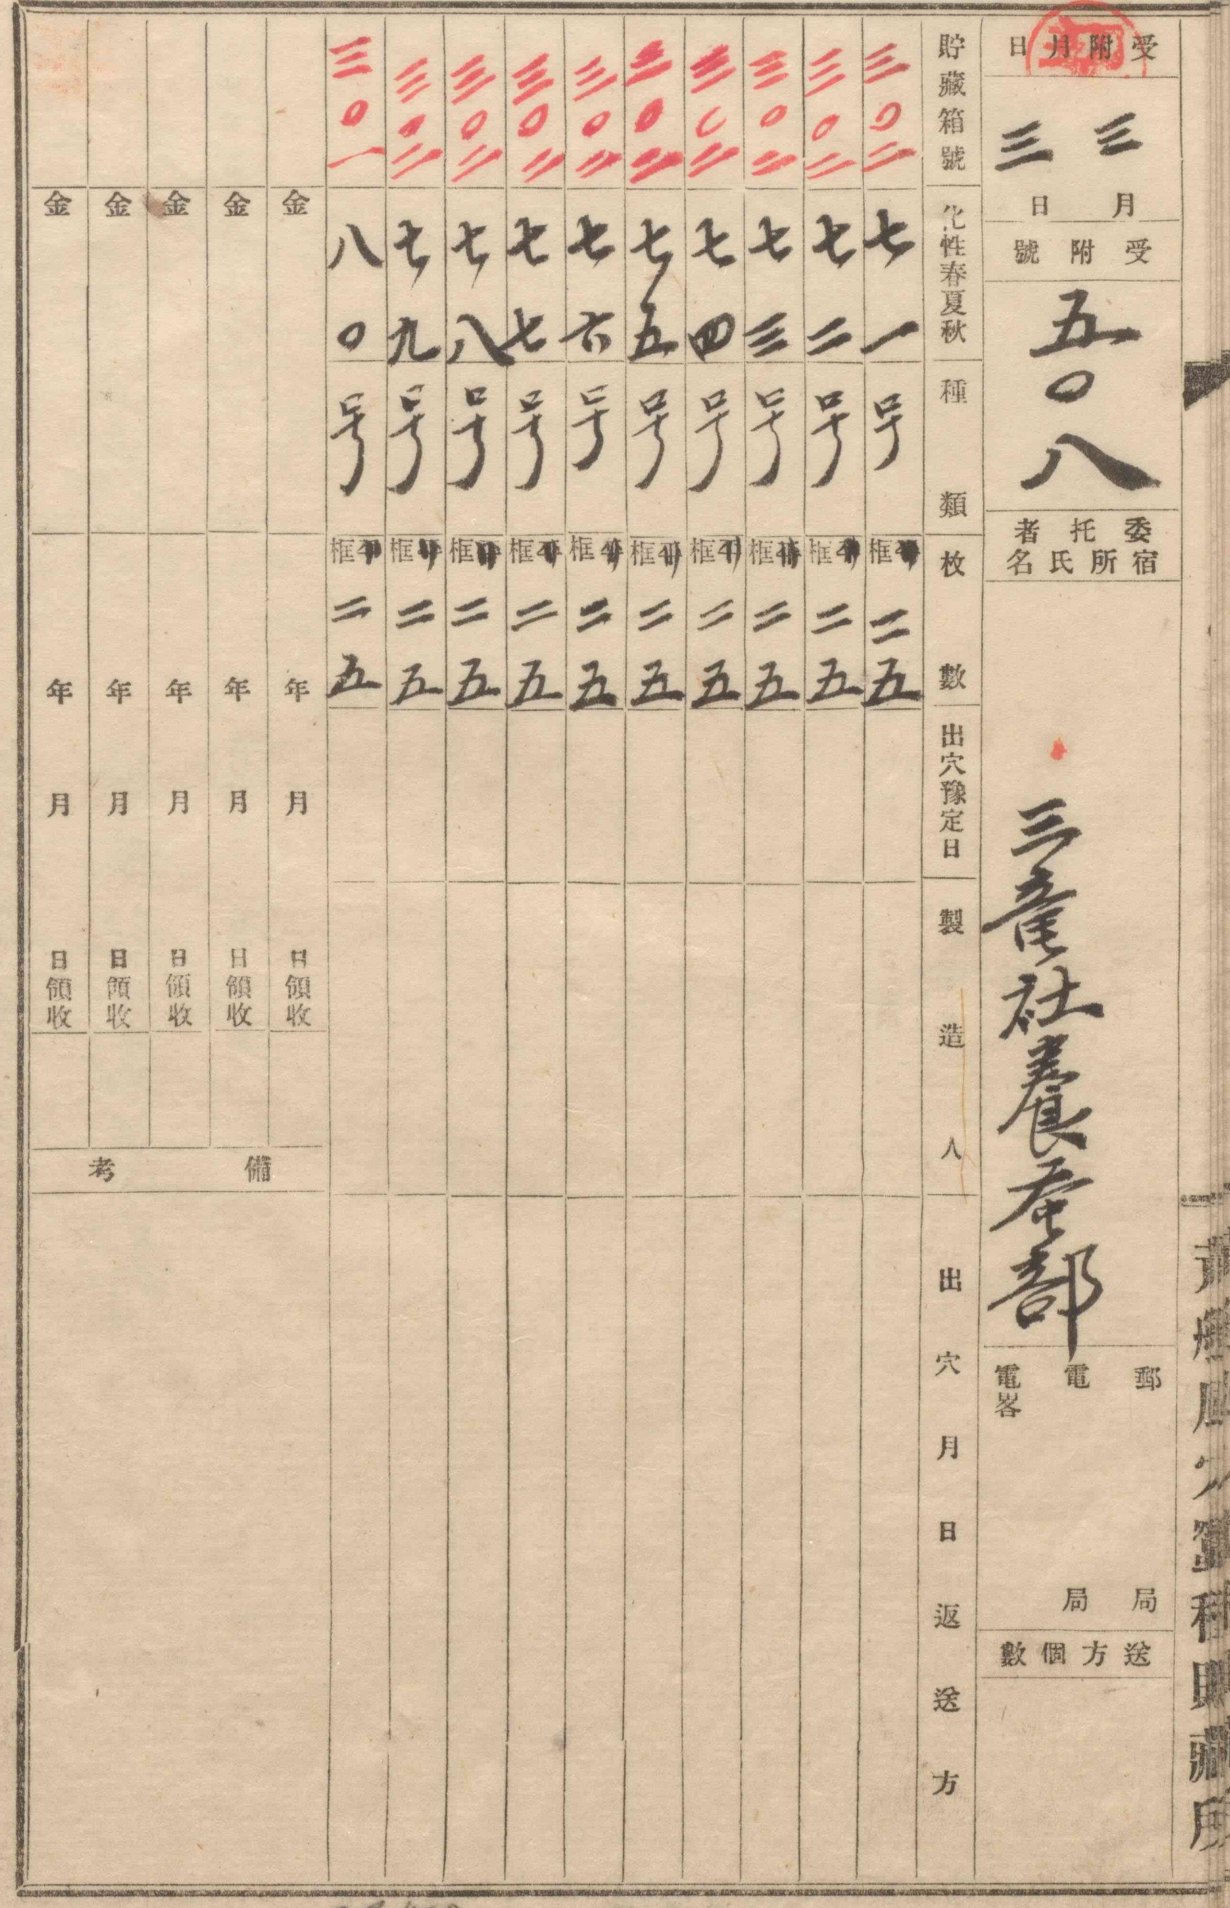 受附月日
三月三日
受附號
五〇八
委托者
宿所氏名
三竜社養蚕部
郵 局
電 局
電畧
送方個數
貯藏箱號
化性春夏秋
種類
枚數
出穴豫定日
製造人
出穴月日返送方
三〇二 七一号 框 二五
三〇二 七二号 框 二五
三〇二 七三号 框 二五
三〇二 七四号 框 二五
三〇二 七五号 框 二五
三〇二 七六号 框 二五
三〇二 七七号 框 二五
三〇二 七八号 框 二五
三〇二 七九号 框 二五
三〇一 八〇号 框 二五
金 年 月 日領收
金 年 月 日領收
金 年 月 日領收
金 年 月 日領收
金 年 月 日領收
備考